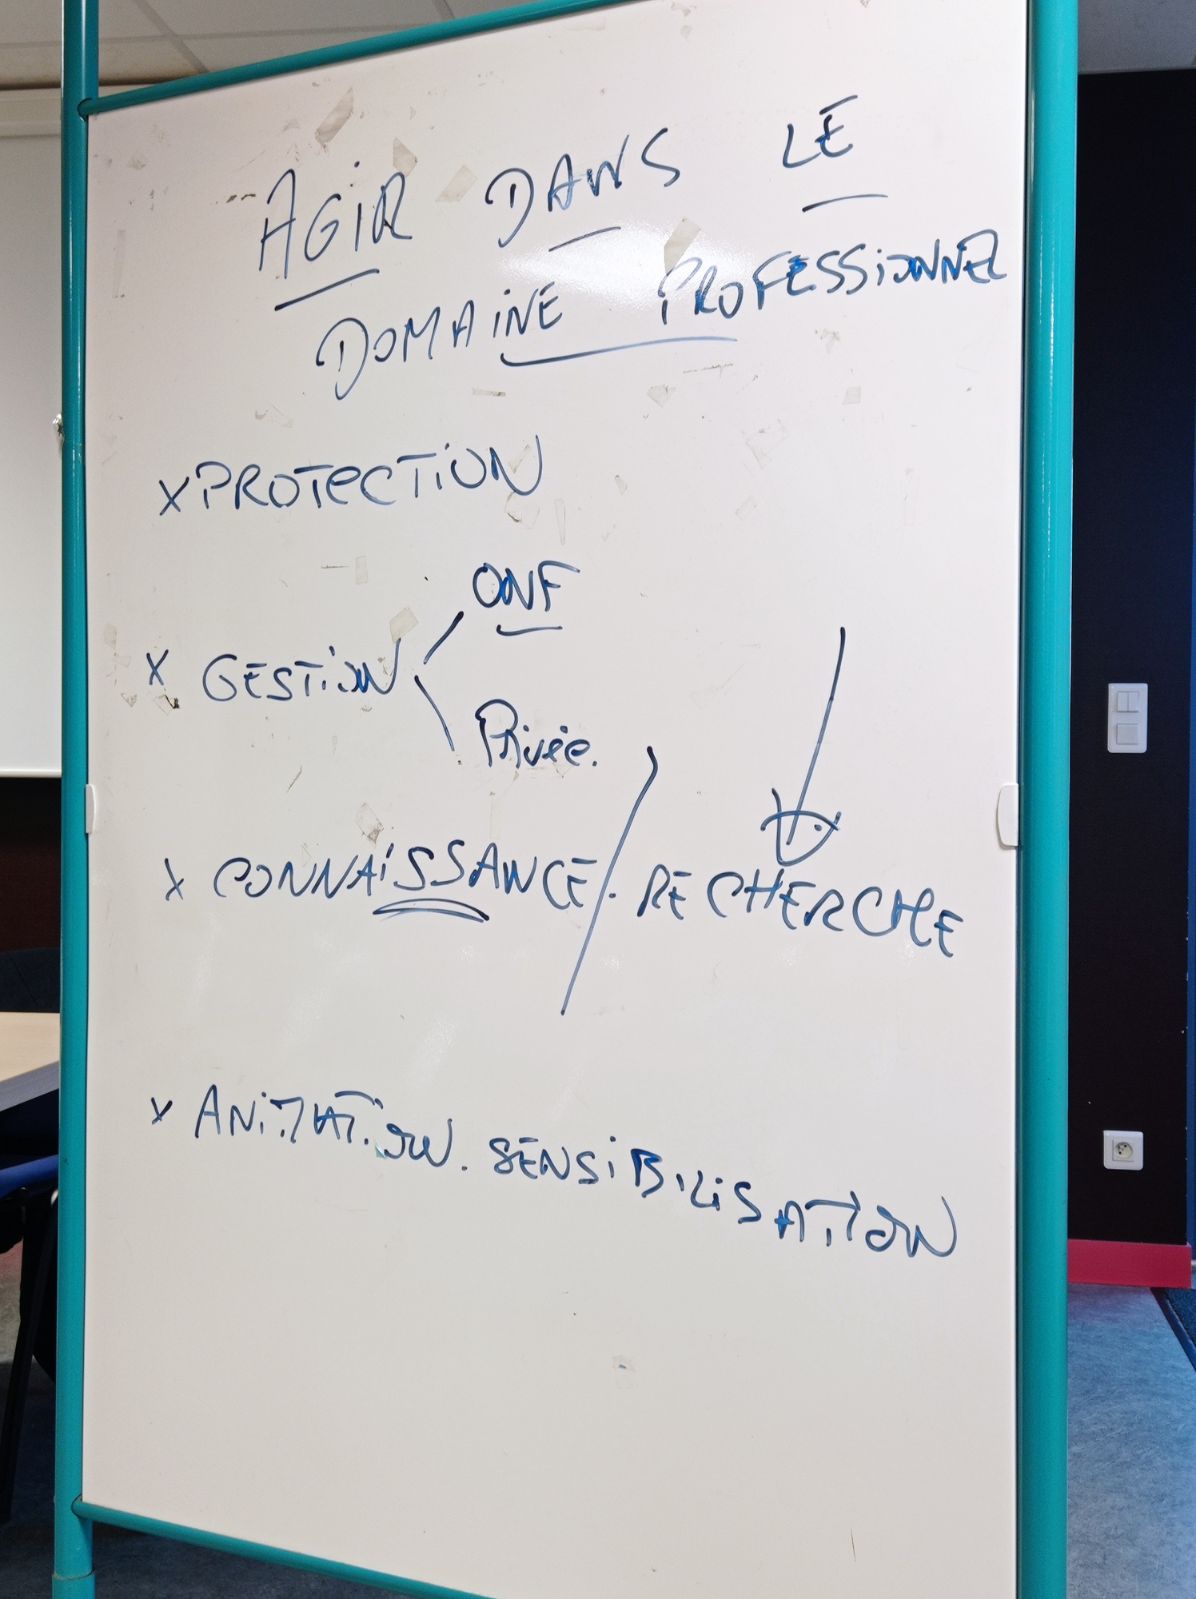 AGIR DANS LE
DOMAINE PROFESSIONNEL
x PROTECTION
ONF
x GESTION
Privée.
x CONNAISSANCE / RECHERCHE
x ANIMATION. SENSIBILISATION